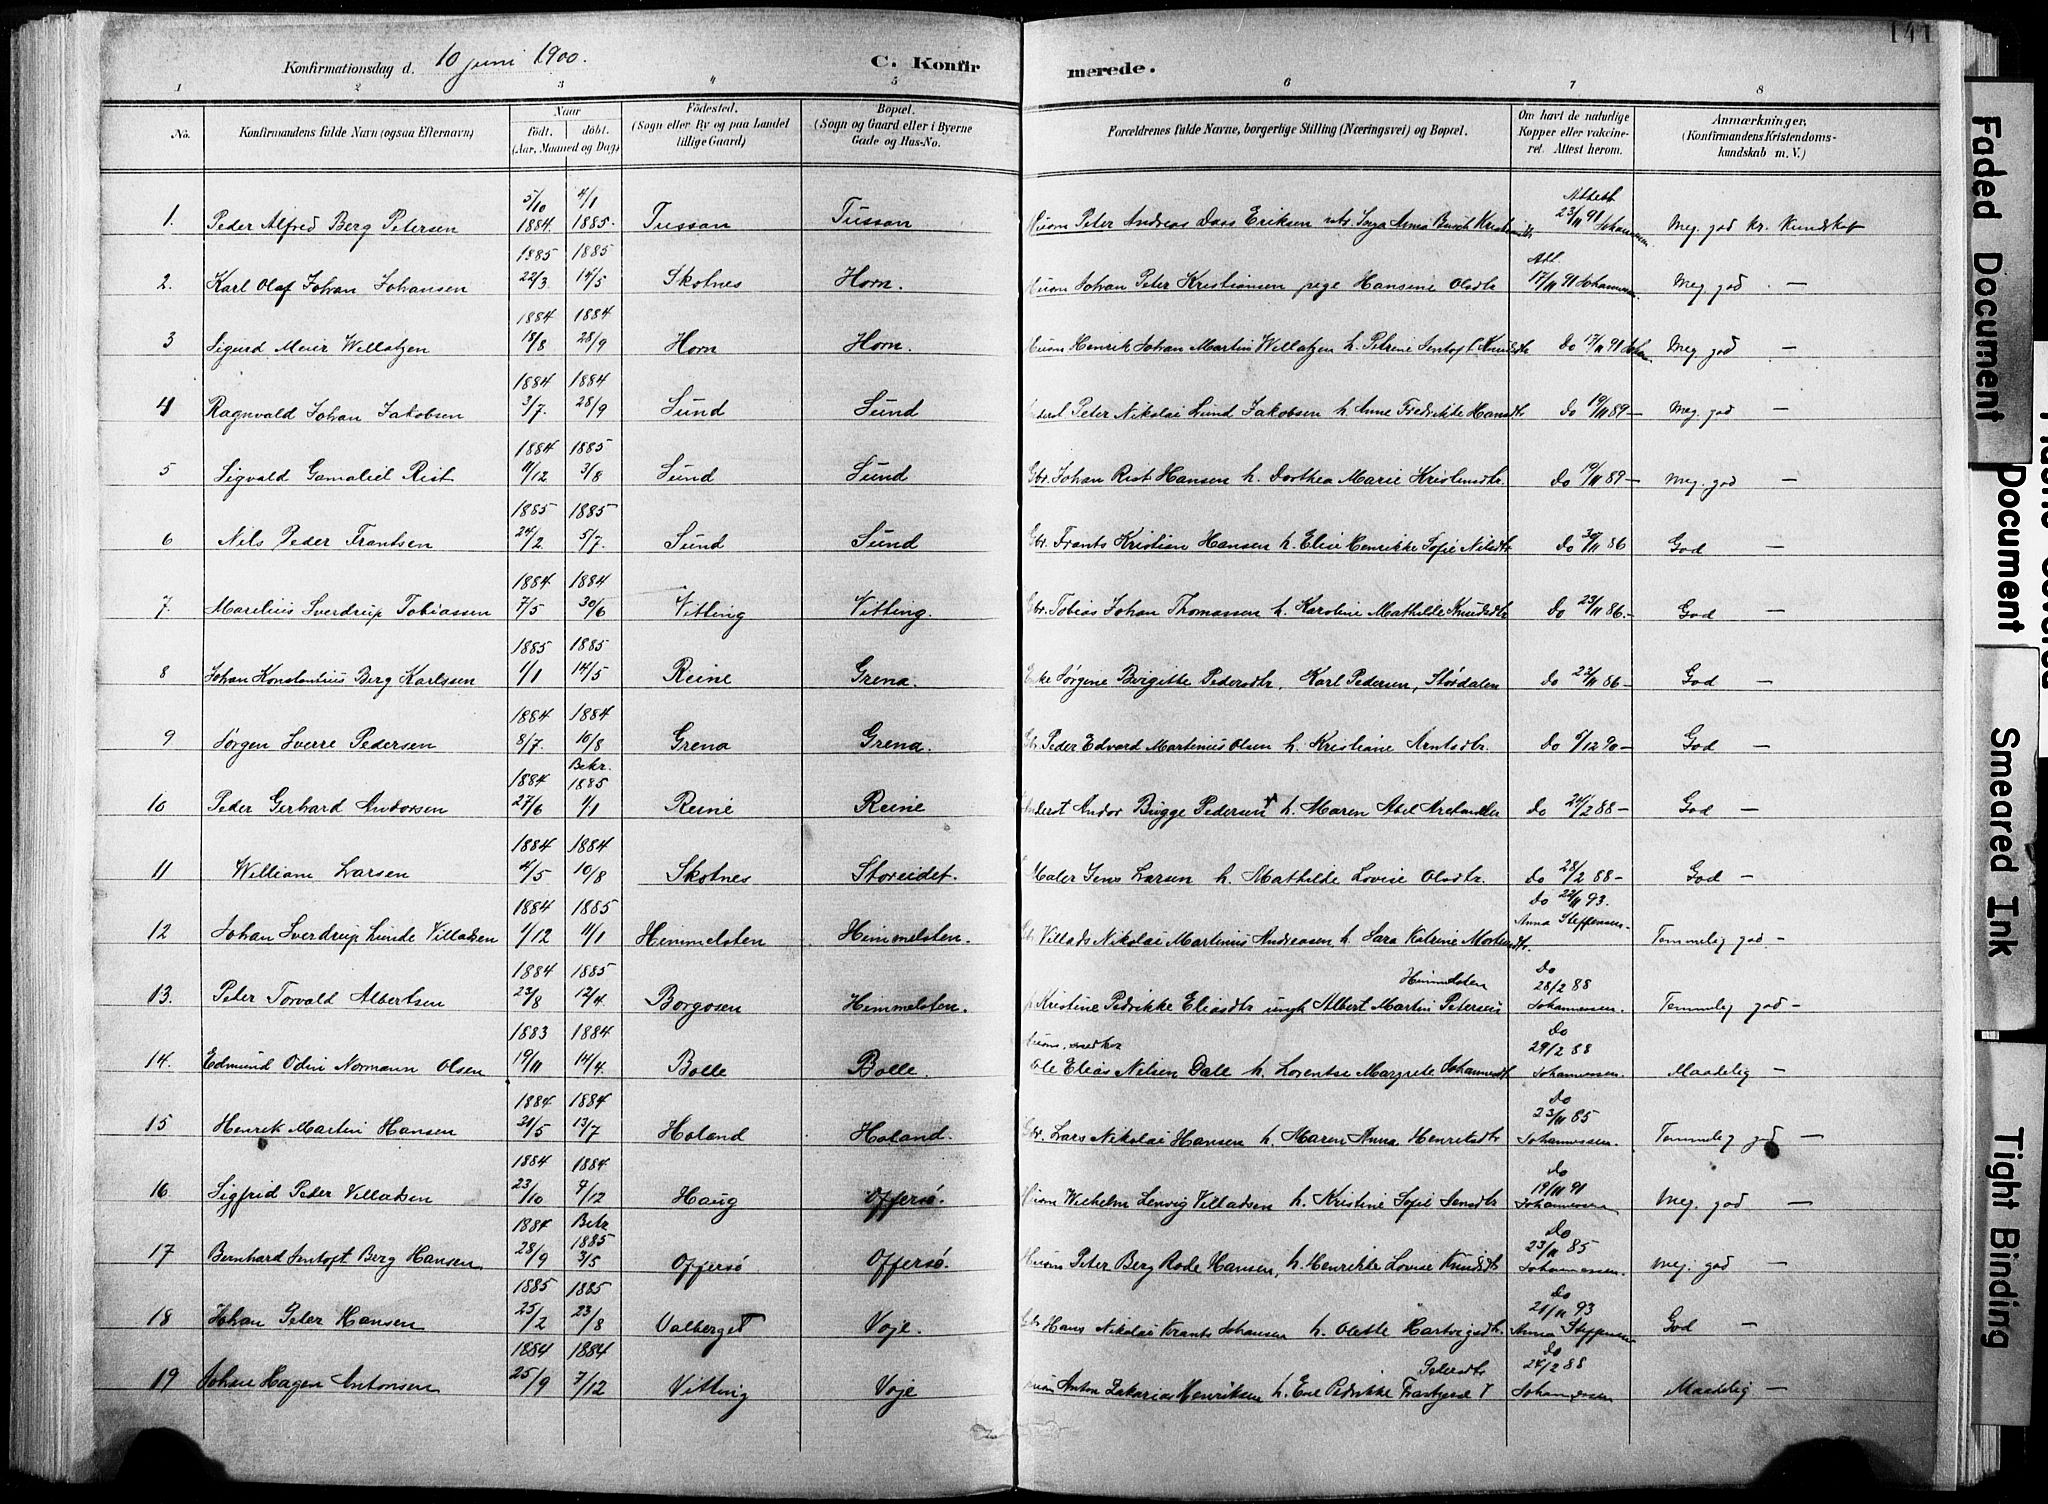 141
Konfirmationsdag d. 10 juni 1900.
C. Konfirmerede.
1 2 3 4 5 6 7 8
No.
Konfirmandens fulde Navn (ogsaa Efternavn)
Naar
födt. döbt.
(Aar, Maaned og Dag)
Födested.
(Sogn eller By og paa Landet
tillige Gaard)
Bopæl.
(Sogn og Gaard eller i Byerne
Gade og Hus-No.
Forældrenes fulde Navne, borgerlige Stilling (Næringsvei) og Bopæl.
Om havt de naturlige
Kopper eller vakcine-
ret. Attest herom.
Anmærkninger,
(Konfirmandens Kristendoms-
kundskab m. V.)
1. Peder Alfred Berg Petersen 5/10 1884. 4/1 1885. Tussan Tussan Peter Andreas Dass Eriksen Inga Anna Busch Attest 23/11 91 Johannessen Meg. god kr. Kundskap
2. Karl Olaf Johan Johansen 1885 22/3 1885 14/5 Skotnes Horn. Johan Peter Kristiansen pige Hansine Olsdtr Att. 17/11 91 Johannessen Meg. god —
3 Sigurd Meier Willatzen 1884 18/8 1884 28/9 Horn Horn. Henrik Johan Martin Willatzen h. Petrine Jentoft Knudsdtr Do 17/11 91 Meg. god —
4 Ragnvald Johan Jakobsen 1884 3/7. 1884 28/9 Sund Sund Peter Nikolai Lund Jakobsen h. Anne Fredrikke Hansdtr Do 19/11 89 — Meg. god —
5 Sigvald Gamaliel Rist 1884 11/12 1885 3/8 Sund Sund Gbr. Johan Rist Hansen h. Dorthea Marie Kristensdtr. Do 19/11 89 — Meg. god —
6 Nils Peder Frantsen 1885 24/2 1885 5/7. Sund Sund Gbr. Frants Kristian Hansen h. Elise Henrikke Sofie Nilsdtr Do 30/11 86 God —
7. Marelius Sverdrup Tobiassen 1884 7/5 1884 30/6 Vitting Vitting. Gbr. Tobias Johan Thomassen h. Karoline Mathilde Knudsdtr Do 23/11 86. — God —
8 Johan Konstantius Berg Karlssen 1885 1/1 1885 14/5 Reine Grena. Enke Jörgine Birgitte Pedersdtr, Karl Pedersen, Stördalen Do 23/11 86 — God —
9 Jørgen Sverre Pedersen 1884 8/7. 1884 10/8 Grena Grena. Gbr. Peder Edvard Martinius Olsen h. Kristiane Arntsdtr. Do 5/12 90 — God —
10 Peder Gerhard Andorsen 1884 27/6 Bekr. 1885 1/1 Reine Reine Andor Bugge Pedersen h. Maren Abel Do 24/2 88 — God —
11 William Larsen 1884 4/5 1884 10/8 Skotnes Storeidet. Maler Jens Larsen h. Mathilde Lovise Olsdtr. Do 28/2 88 — God —
12 Johan Sverdrup Lunde Villadsen 1884 1/12 1885 11/1 Himmelsten Himmelsten. Gbr. Villads Nikolai Martinius Andreasen h. Sara Katrine Do 22/11 93. Anna Steffensen Temmelig god —
13. Peter Torvald Albertsen 1884 23/8 1885 12/4. Borgosen Himmelsten. p. Kristine Pedrikke Eliasdtr ungk Albert Martin Petersen Himmelsten Do 28/2 88 Johannessen. Temmelig god —
14. Edmund Odin Normann Olsen 1883 19/11 1884 14/4. Bolle Bolle. Ole Elias Nilsen Dall h. Lorentse Margrete Do 29/2 88 Johannessen. Maadelig —
15 Henrik Martin Hansen 1884 21/5 1884 13/7 Holand Holand. Gbr. Lars Nikolai Hansen h. Maren Anna Do 23/11 85 Johannessen. Temmelig god —
16 Sigfrid Peder Villadsen 1884 23/10 1884 7/12 Haug Offersö. Wilhelm Lenvig Villadsen h. Kristine Sofie Jensdtr Do 19/11 91 Johannessen Meg. god —
17 Bernhard Jentoft Berg Hansen 1884 28/9 Bekr 1885 3/5 Offersö Offersö. Peter Berg Rode Hansen, h. Henrikke Lovise Knudsdtr Do 23/11 85 Johannessen. Meg. god —
18 Johan Peter Hansen 1885 25/2 1885 23/8 Valberget Voje. Gbr Hans Nikolai Krants Johansen h. Olette Hartvigsdtr. Do 21/11 93 Anna Steffensen God —
19 Johan Hagen Antonsen 1884 25/9 1884 7/12 Vitting Voje Anton Zakarias Henriksen h. Ene Pedrikke Pedersdtr Do 24/2 88 Johannessen Maadelig —
Faded Document
Document
Smeared Ink
Tight Binding